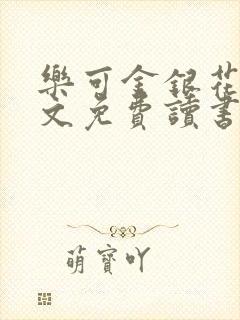 樂可金銀花
文免費讀書
萌寶吖